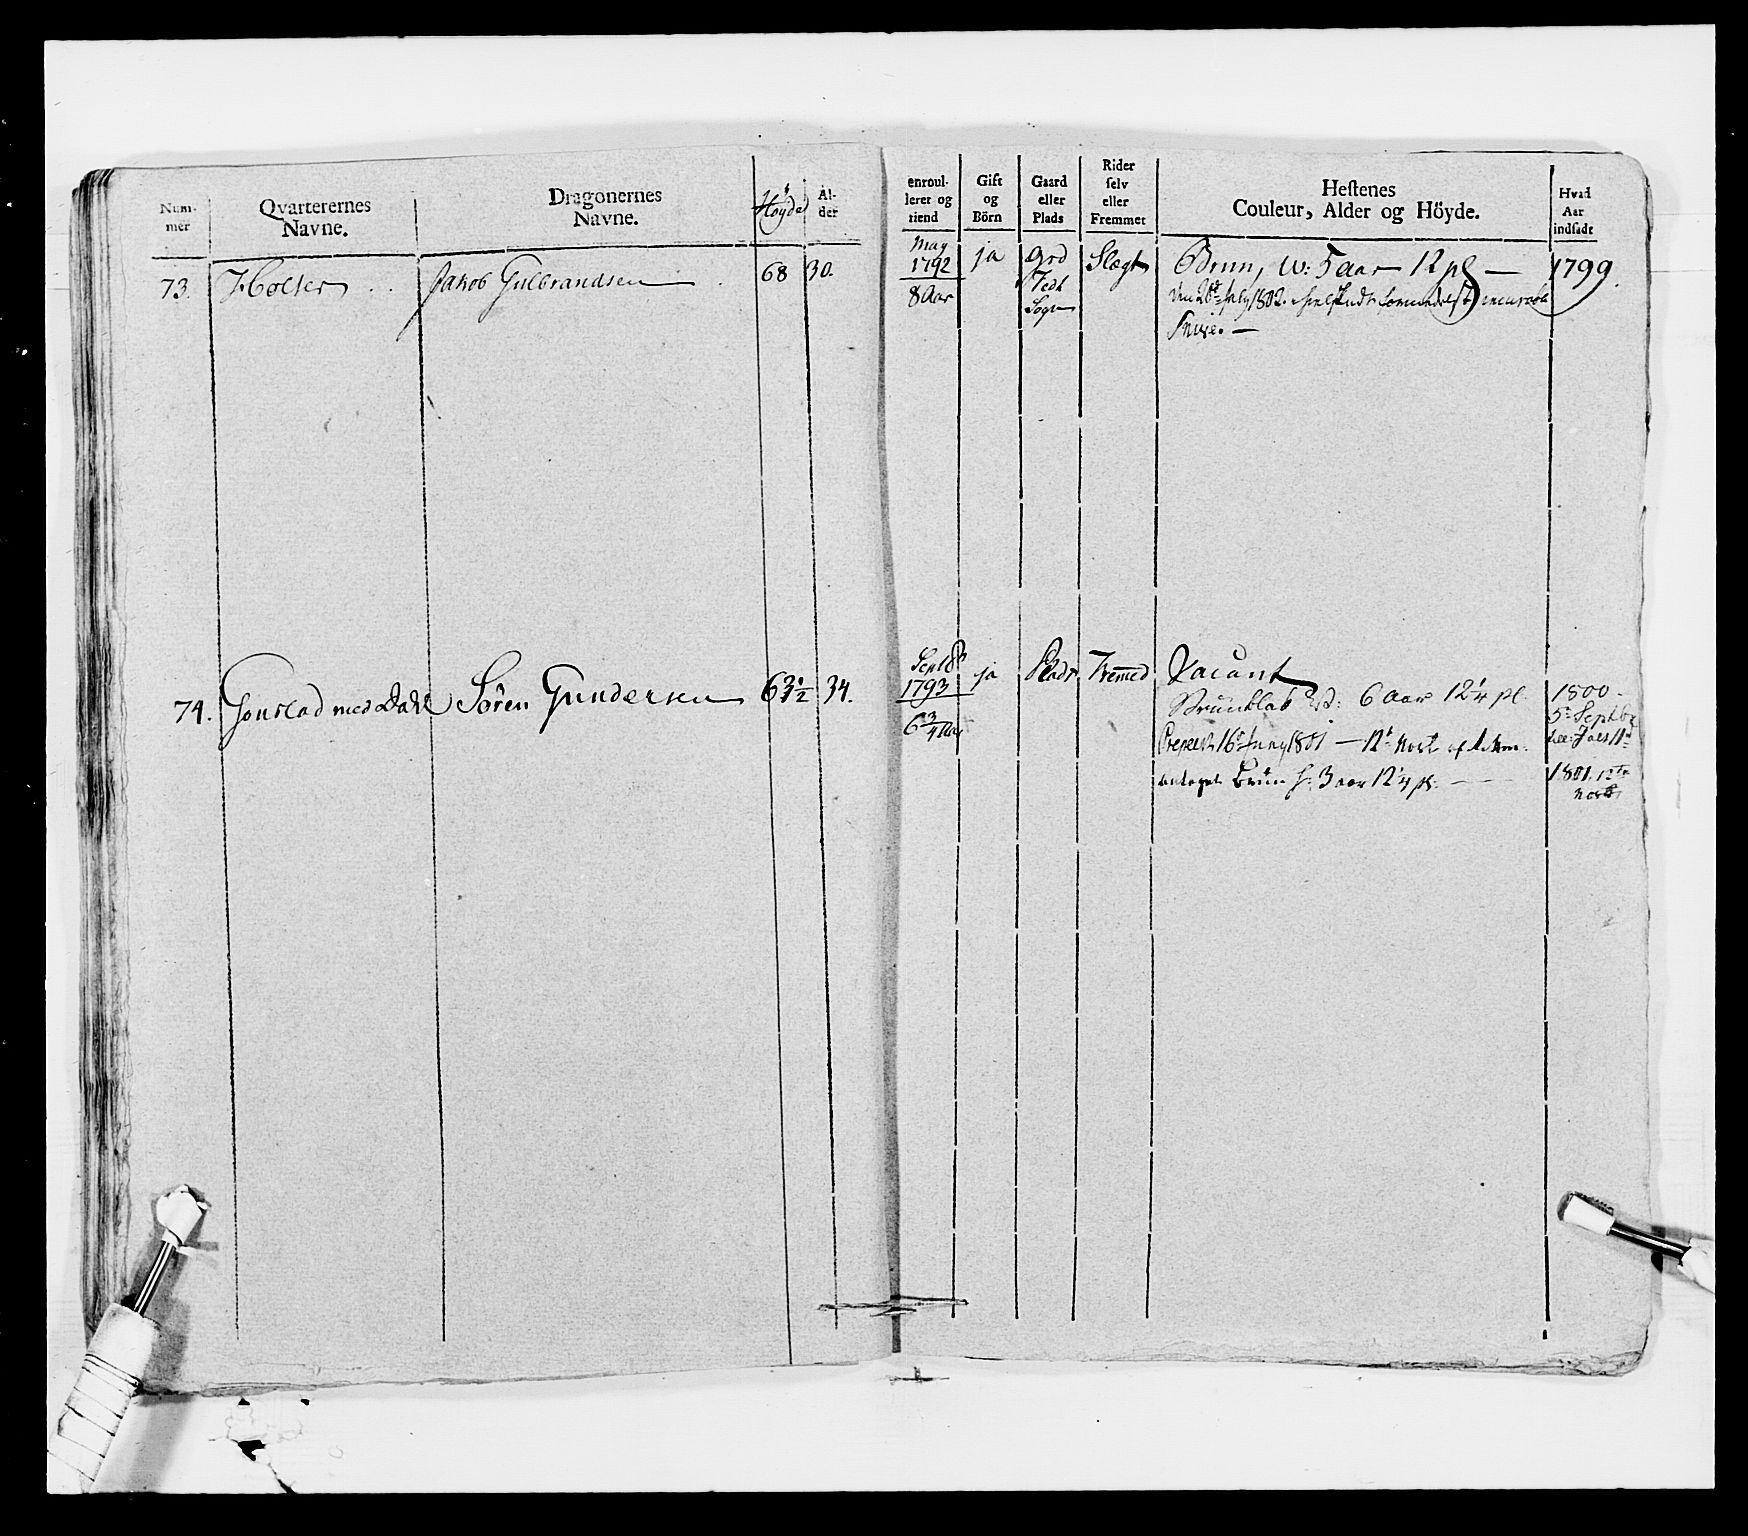 Num-
mer
Qvarterernes
Navne.
Dragonernes
Navne.
Höyde
Al-
der
enroul-
leret og
tiend
Gift
og
Börn
Gaard
eller
Plads
Rider
selv
eller
Fremmet
Hestenes
Couleur, Alder og Höyde.
Hvad
Aar
indsadt
73. Holter Jakob Gulbrandsen 68 30.
May
1792
8 Aar
ja
Grd
Fedt
Sogn
Slægt
Brun, W: 5 aar 12 pl —
1799.
den 26de July 1802
Snive. —
74. med Dahl Sören Gundersen 63 1/2 34.
Septbr
1793
6 3/4 Aar
ja
Plads
Fremed
Vacant
6 Aar 12 1/4 pl.
16de Juny 1801 — 12te
Brun H: 3 aar 12 1/4 pl. —
1800.
5te Septbr
1801. 12te